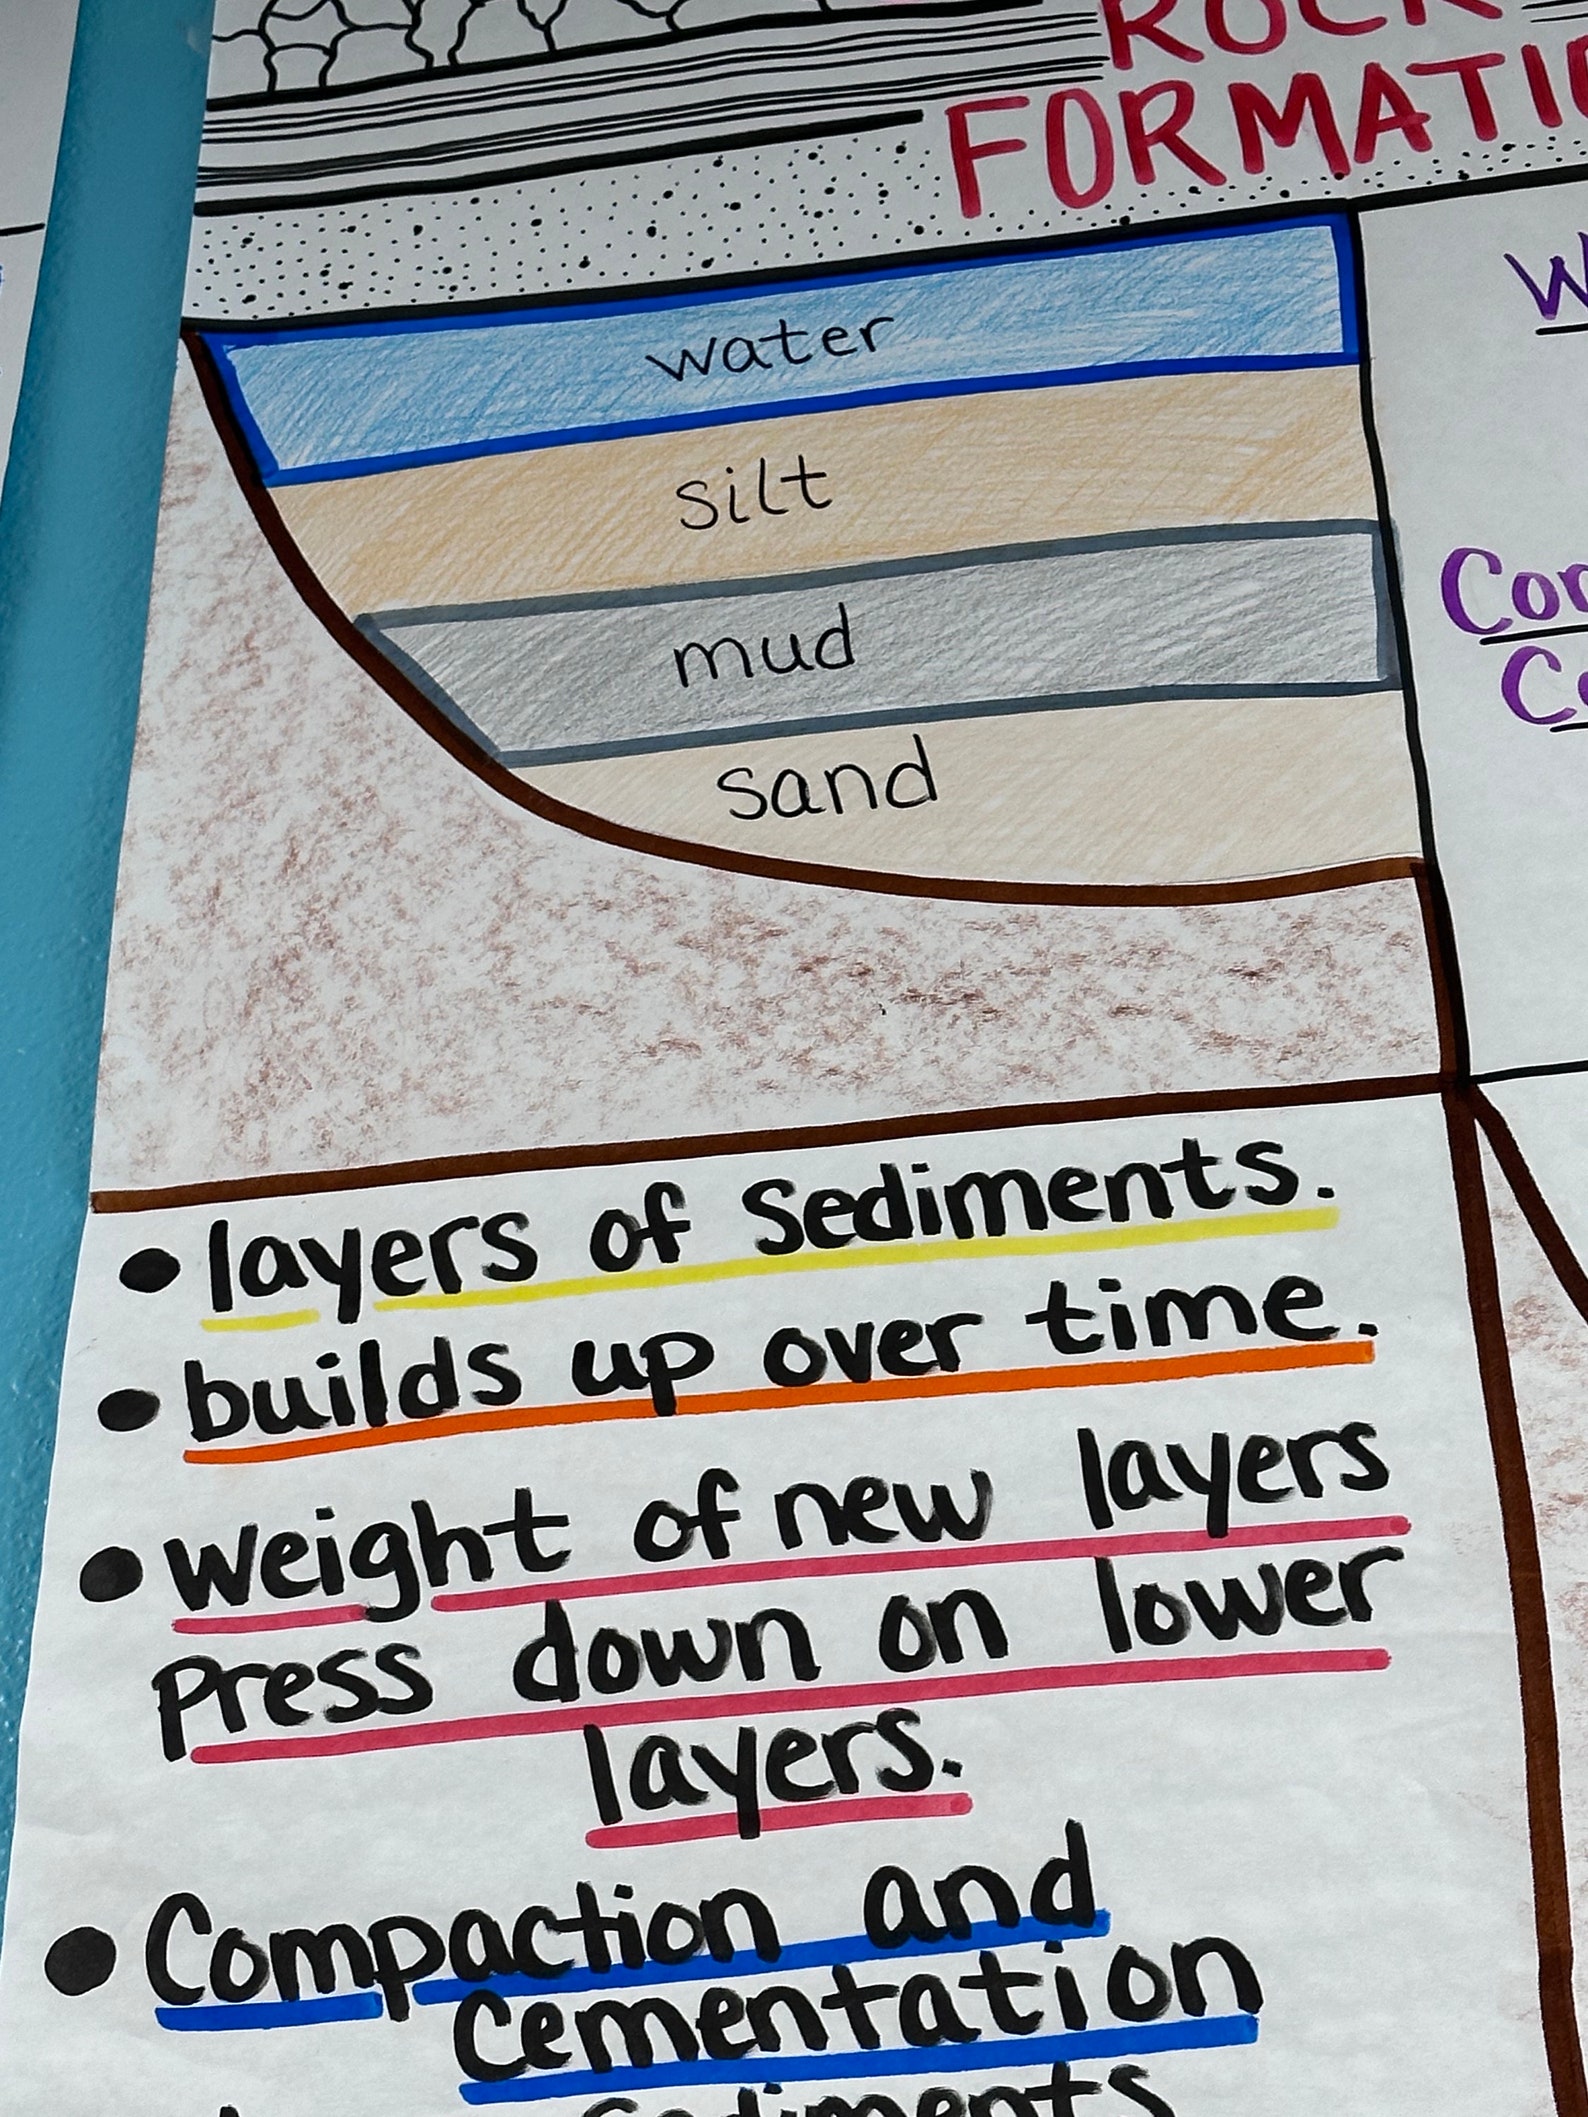 ROCK
FORMATI
water
silt
mud
sand
• layers of Sediments.
• builds up over time.
• Weight of new layers
Press down on lower
layers.
• Compaction and
Cementation
Sediments